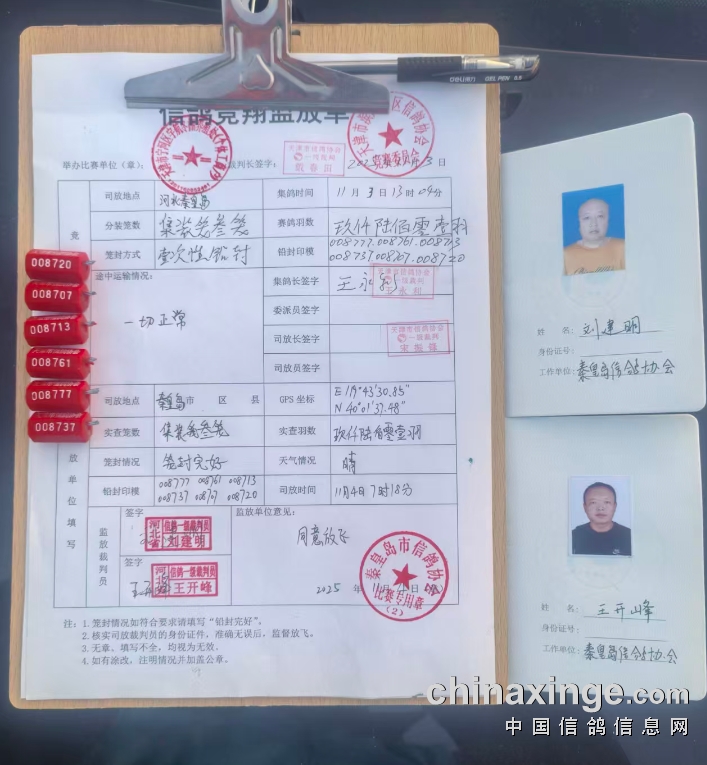 deli(得力) GEL PEN 0.5
信鸽竞翔监放单
举办比赛单位（章）： 裁判长签字： 3 日
司放地点 河北秦皇岛 集鸽时间 11月3日13时04分
分装笼数 集装笼叁笼 赛鸽羽数 玖仟陆佰零壹羽
笼封方式 壹次性铅封 铅封印模 008777.008761.008713
008737 008707.008720
途中运输情况： 集鸽长签字 王永
一切正常 委派员签字
司放长签字
司放员签字
司放地点 秦皇岛市 区 县 GPS 坐标 E 119°43'30.85"
N 40°01'37.48"
实查笼数 集装笼叁笼 实查羽数 玖仟陆佰零壹羽
笼封情况 笼封完好 天气情况 晴
铅封印模 008777 008761 008713
008737 008707 008720 司放时间 11月4日7时18分
放单位填写
监放裁判员
签字 监放单位意见：
河北省 信鸽一级裁判员 刘建明
同意放飞
签字
信鸽一级裁判员 王开峰
2025 年
秦皇岛市信鸽协会
比赛专用章
(2)
注：1.笼封情况如符合要求请填写“铅封完好”。
2.核实司放裁判员的身份证件，准确无误后，监督放飞。
3.无章、填写不全，均视为无效。
4.如有涂改，注明情况并加盖公章。
008720
008707
008713
008761
008777
008737
姓 名： 刘建明
身份证号：
工作单位： 秦皇岛信鸽协会
姓 名： 王开峰
身份证号：
工作单位： 秦皇岛信鸽协会
chinaxinge.com
中国信鸽信息网